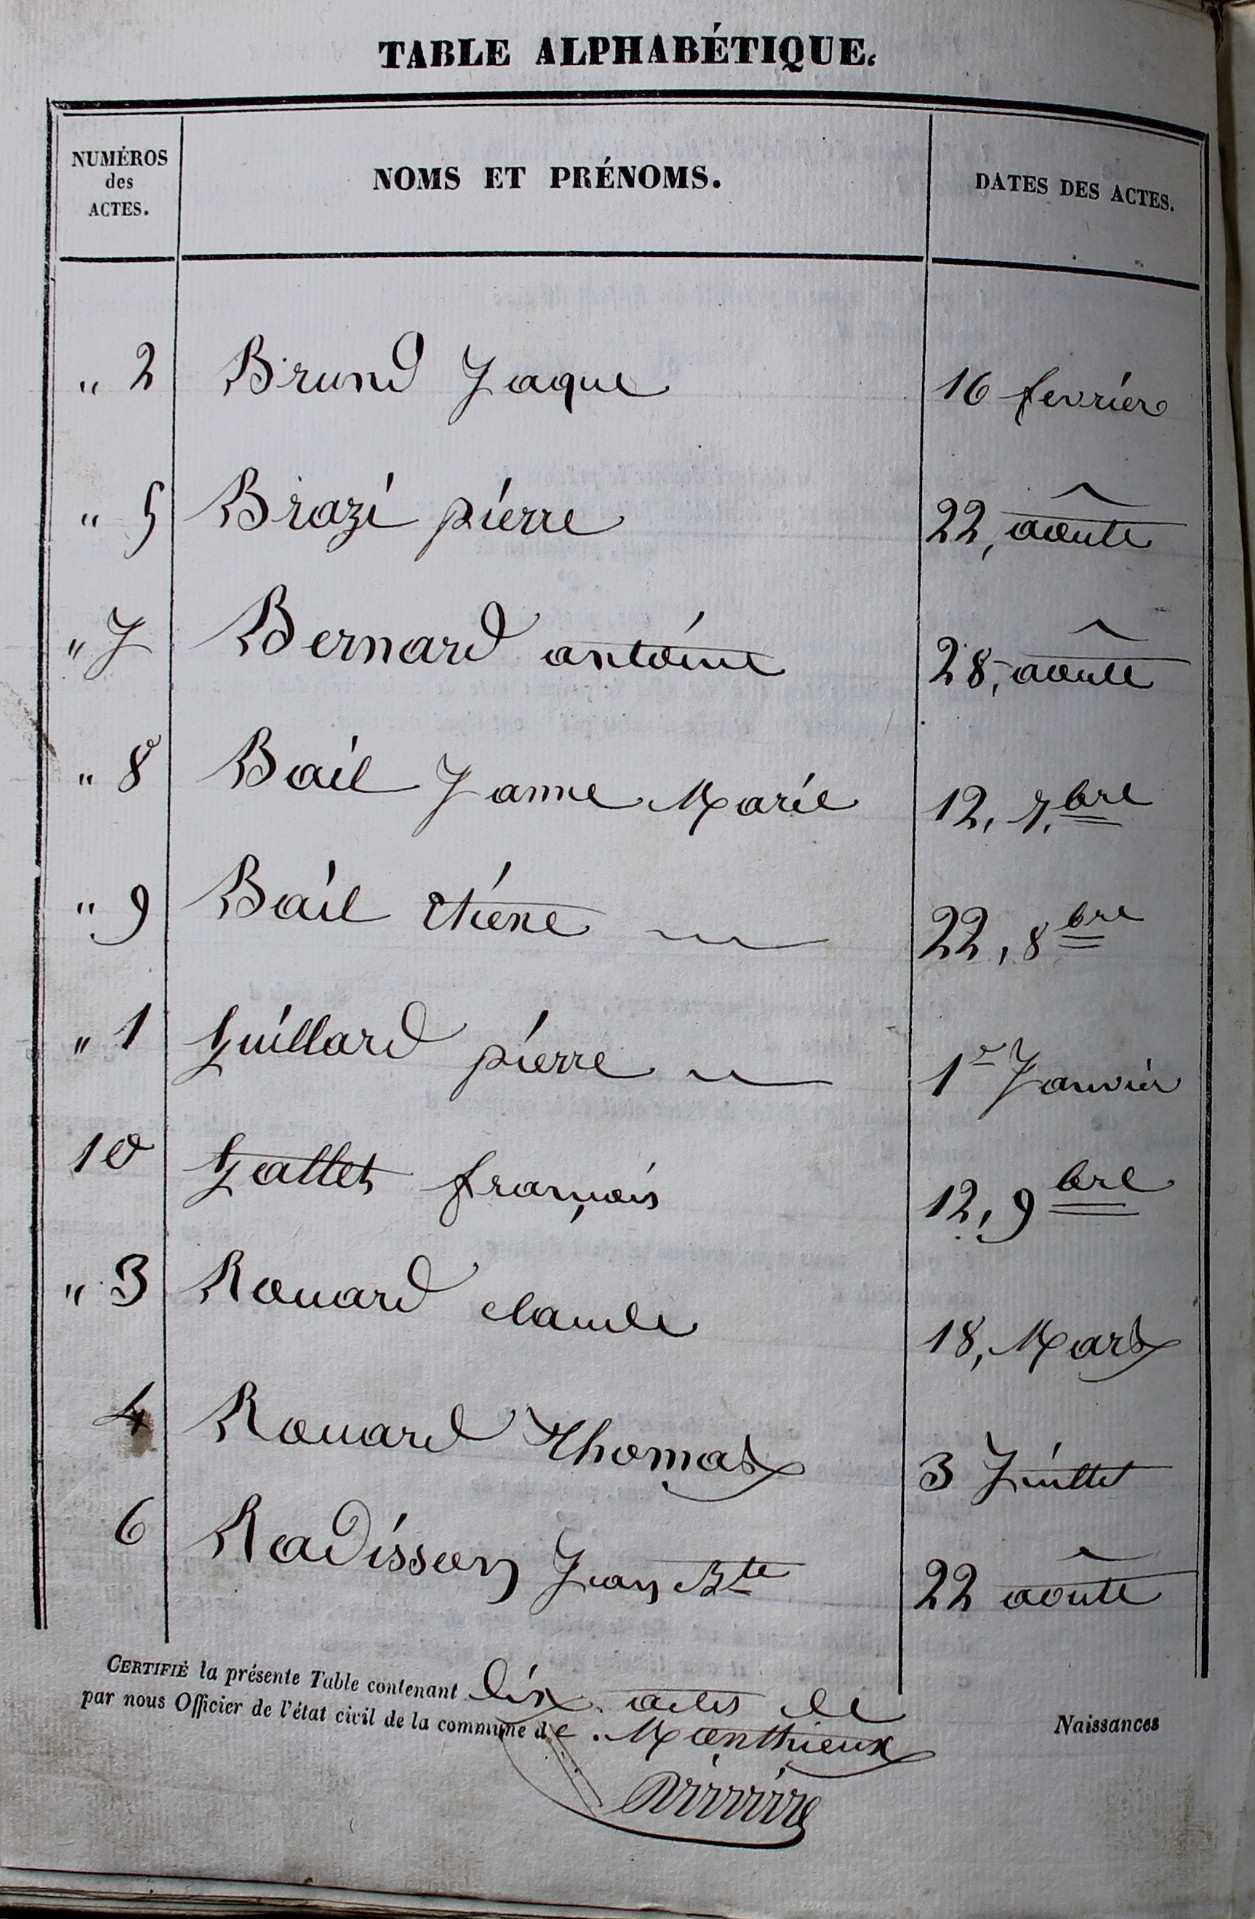 TABLE ALPHABÉTIQUE.
NUMÉROS des ACTES.
NOMS ET PRÉNOMS.
DATES DES ACTES.
" 2 Brund Jaque 16 fevrier
" 5 Brazi pierre 22, aoûte
" 7 Bernard antoine 28, aoûte
" 8 Bail Janne Marie 12, 7.bre
" 9 Bail etiene 22, 8bre
" 1 Guillard pierre 1er Janvier
10 Gallet françois 12, 9bre
" 3 Rouard claude 18, Mars
4 Rouard Thomas 3 Juillet
6 Radisson Jean Bte 22 aoûte
CERTIFIÉ la présente Table contenant dix actes de
par nous Officier de l'état civil de la commune de Monthieux
Naissances